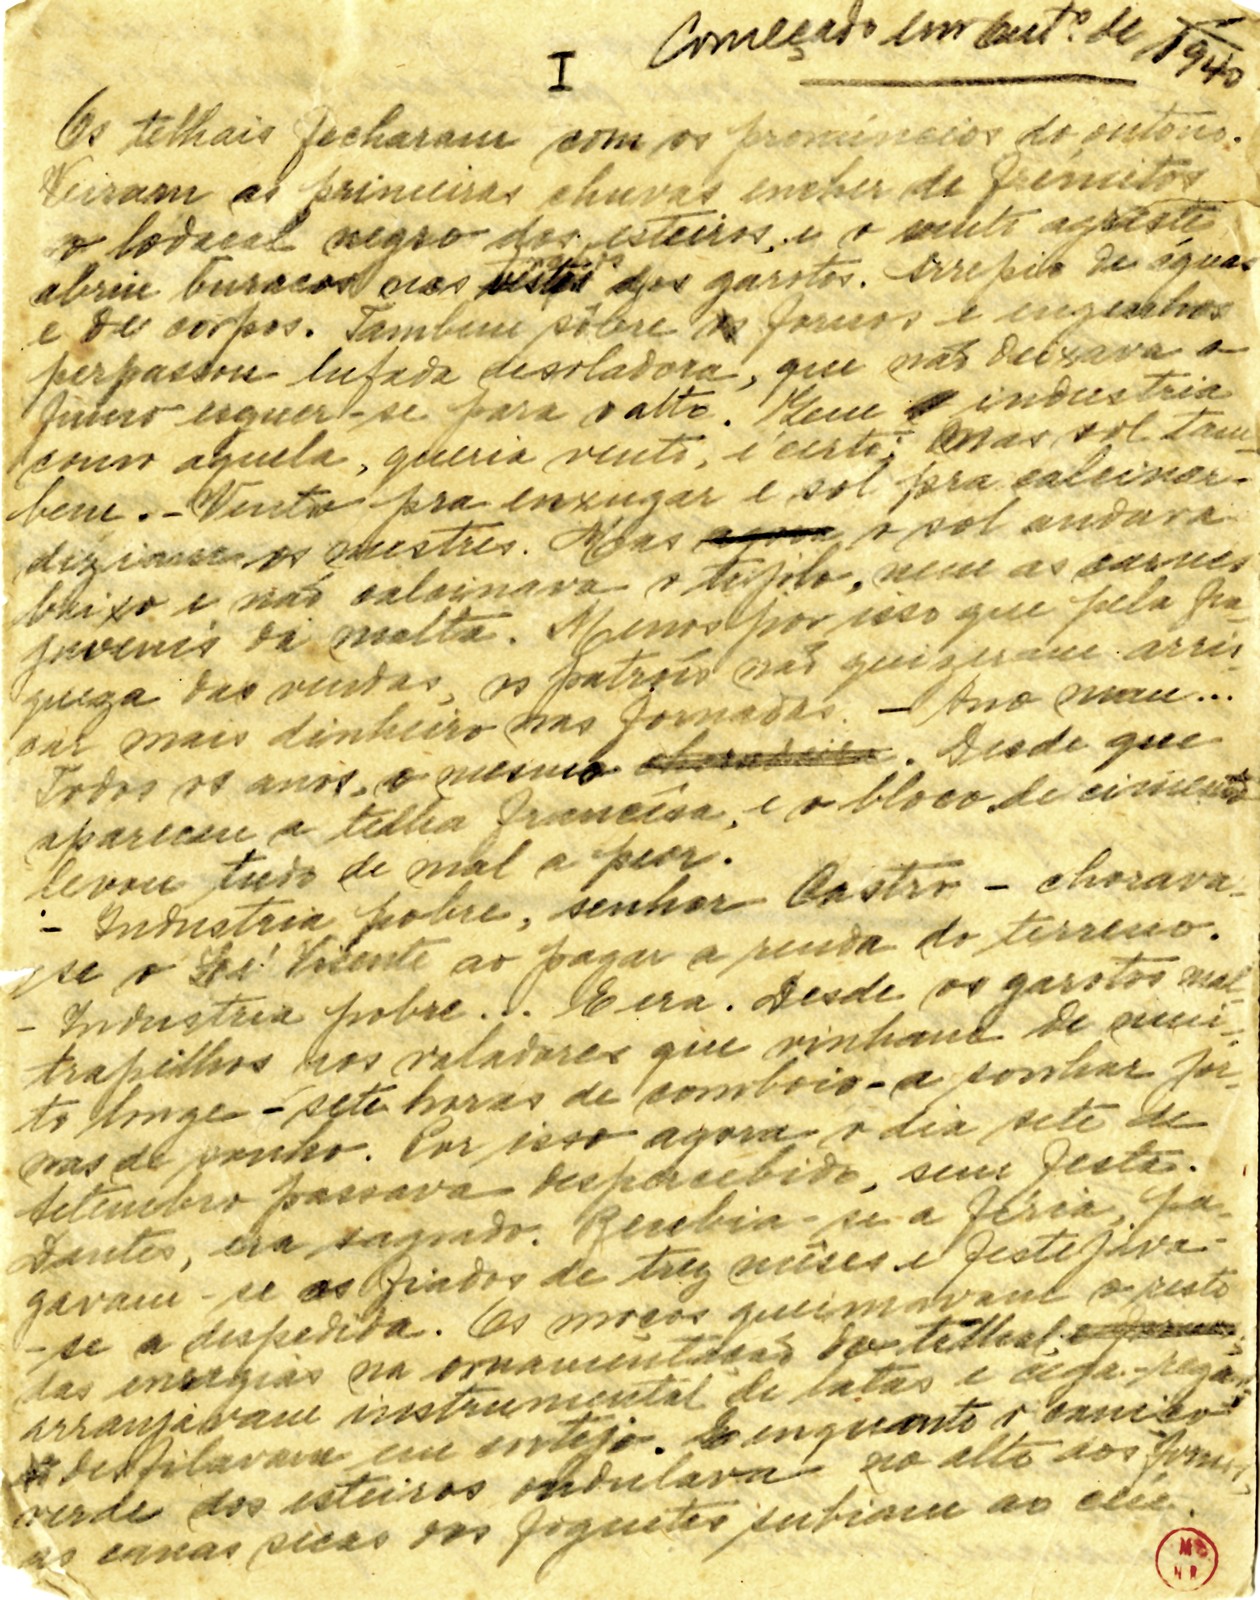 Começado em Outº. de 1940
I
Os telhais fecharam com os promúncios do outono.
Viram as primeiras chuvas encher de frémitos
o lodaçal negro dos esteiros, e o vento agreste
abriu buracos nos dos garotos. Arrepio de águas
e de corpos. Tambem sôbre os fornos e engenhos
perpassou lufada desoladora, que não deixava o
fumo erguer-se para o alto. Que industria
como aquela, queria vento, é certo; mas sol tam-
bem. - Vento pra enxugar e sol pra calcinar -
diziam os mestres. Mas o sol andava
baixo e não calcinava o tejolo, nem as carnes
juvenis da malta. Menos por isso que pela fra-
queza das vendas, os patrões não quizeram arris-
car mais dinheiro nas jornadas. - Ano mau...
Todos os anos, o mesmo. Desde que
apareceu a telha francêsa, e o bloco de cimento
levou tudo de mal a pior.
- Industria pobre, senhor Castro - chorava-
se o Zé Vicente ao pagar a renda do terreno.
- Industria pobre... E era. Desde os garotos mal-
trapilhos aos valadores que vinham de mui-
to longe - sete horas de comboio - a sonhar for-
nas de sonho. Por isso agora o dia sete de
setembro passava despercebido, sem festa.
Dantes, era sagrado. Recebia-se a féria, pa-
gavam-se os fiados de trez mêses e festejava-
-se a despedida. Os moços queimavam o resto
das energias na ornamentação do telhal
arranjavam instrumental de latas e cega-regas,
desfilavam em cortejo. E enquanto o caniço
verde dos esteiros ondulava no alto dos fornos,
as canas sêcas dos foguetes subiam ao céu.